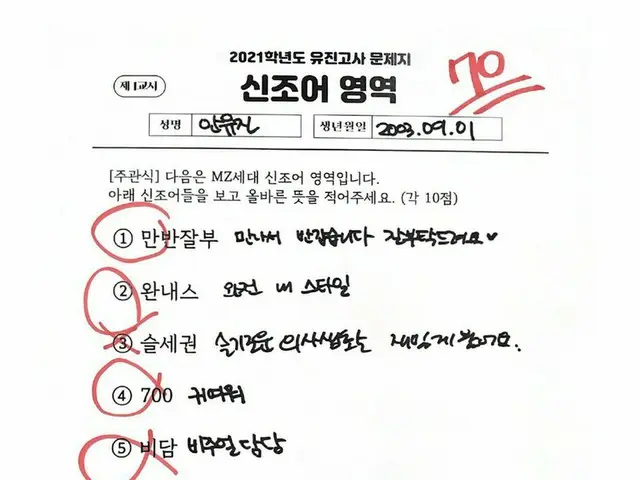 2021학년도 유진고사 문제지
70
제4교시
신조어 영역
성명 안유진 생년월일 2003.09.01
[주관식] 다음은 MZ세대 신조어 영역입니다.
아래 신조어들을 보고 올바른 뜻을 적어주세요. (각 10점)
① 만반잘부 만나서 반갑습니다 잘부탁드려요♥
② 완내스 완전 내 스타일
③ 슬세권 슬기로운 의사생활 재밌게 봤어요.
④ 700 귀여워
⑤ 비담 비주얼 담당